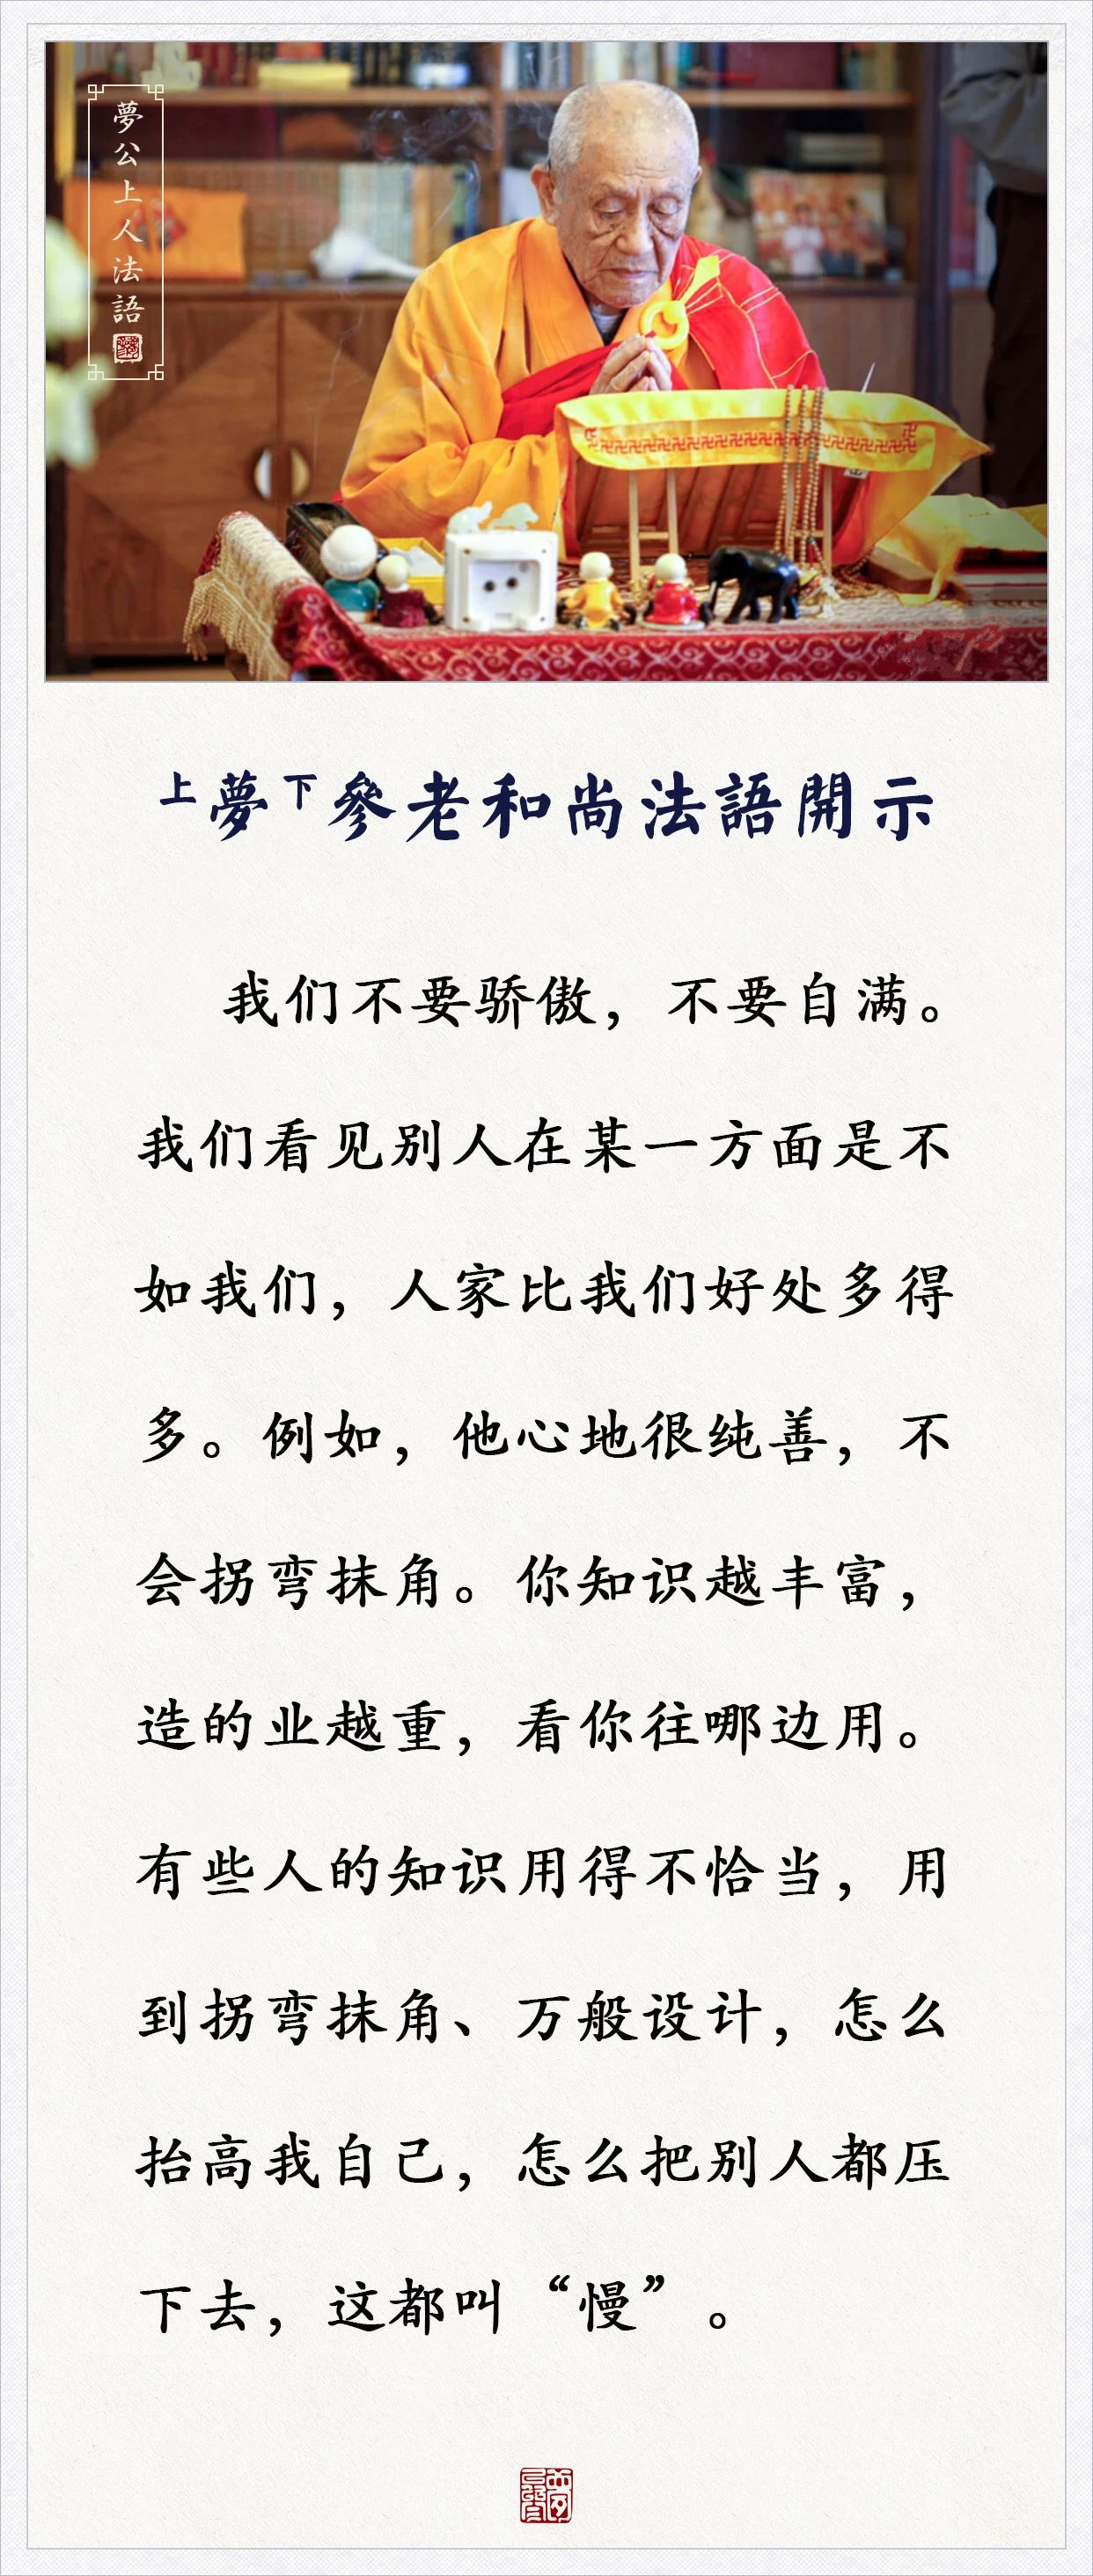 夢公上人法語
上夢下參老和尚法語開示
我们不要骄傲，不要自满。
我们看见别人在某一方面是不
如我们，人家比我们好处多得
多。例如，他心地很纯善，不
会拐弯抹角。你知识越丰富，
造的业越重，看你往哪边用。
有些人的知识用得不恰当，用
到拐弯抹角、万般设计，怎么
抬高我自己，怎么把别人都压
下去，这都叫“慢”。